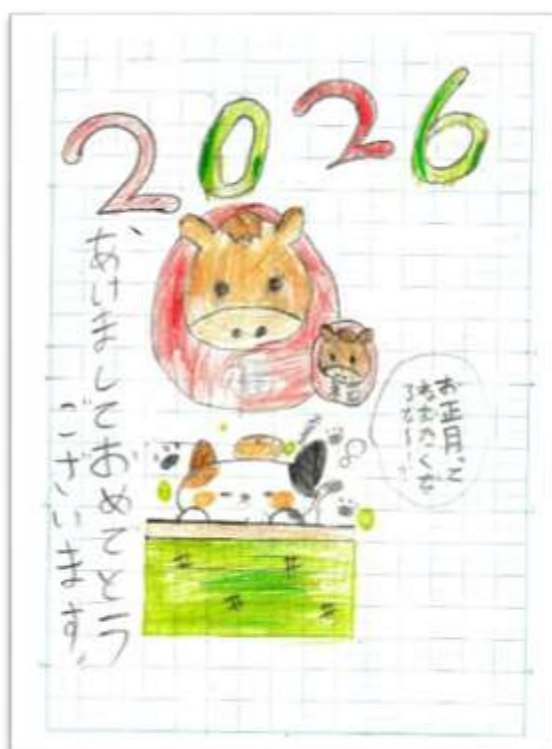 2026
あけましておめでとう
ございます。
お正月って
ねむたくな
るな〜!